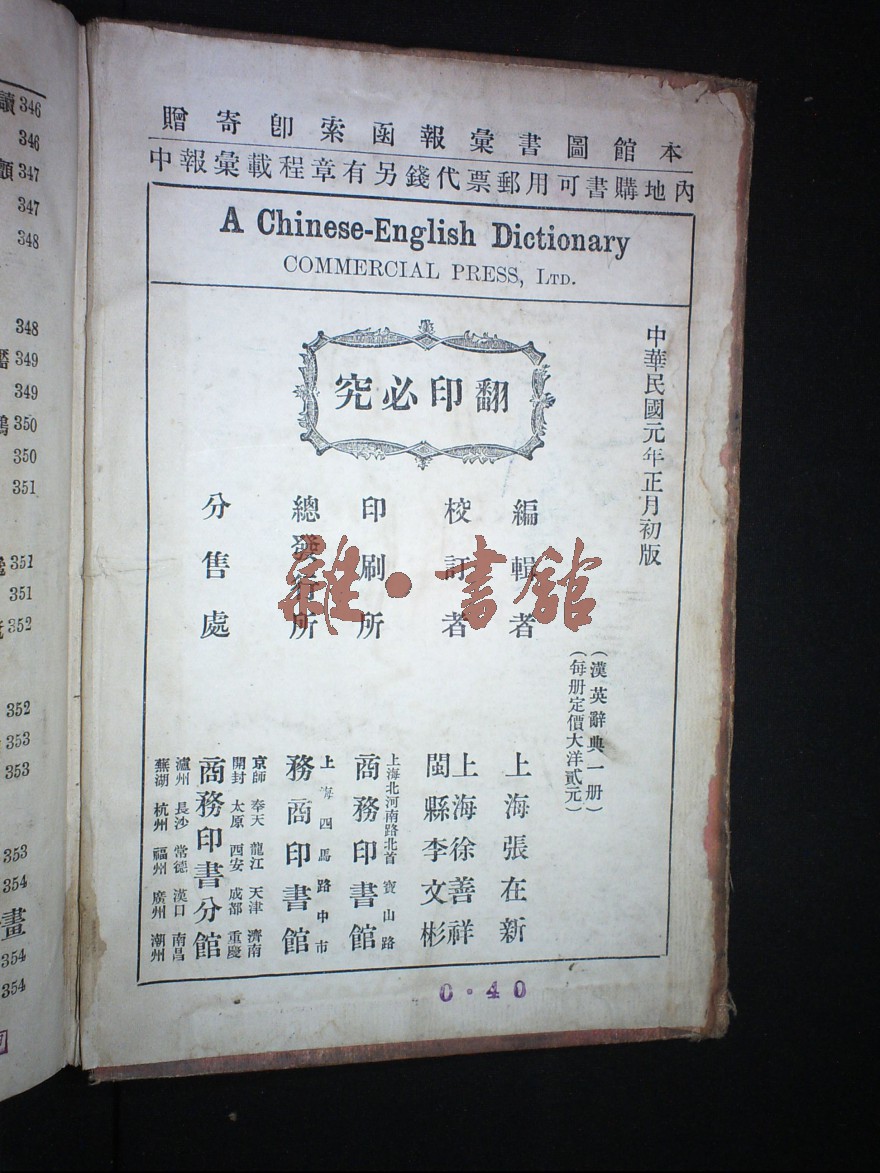 本館圖書彙報函索卽寄贈
內地購書可用郵票代錢另有章程載彙報中
A Chinese-English Dictionary
COMMERCIAL PRESS, LTD.
翻印必究
中華民國元年正月初版
(漢英辭典一册)
(每册定價大洋貳元)
編輯者
上海張在新
校訂者
上海徐善祥
閩縣李文彬
印刷所
上海北河南路北首寶山路
商務印書館
總發行所
上海四馬路中市
商務印書館
分售處
京師 奉天 龍江 天津 濟南
開封 太原 西安 成都 重慶
商務印書分館
瀘州 長沙 常德 漢口 南昌
蕪湖 杭州 福州 廣州 潮州
0.40
雜·書館
346
346
347
347
348
348
349
349
350
350
351
351
351
352
352
353
353
353
354
354
354